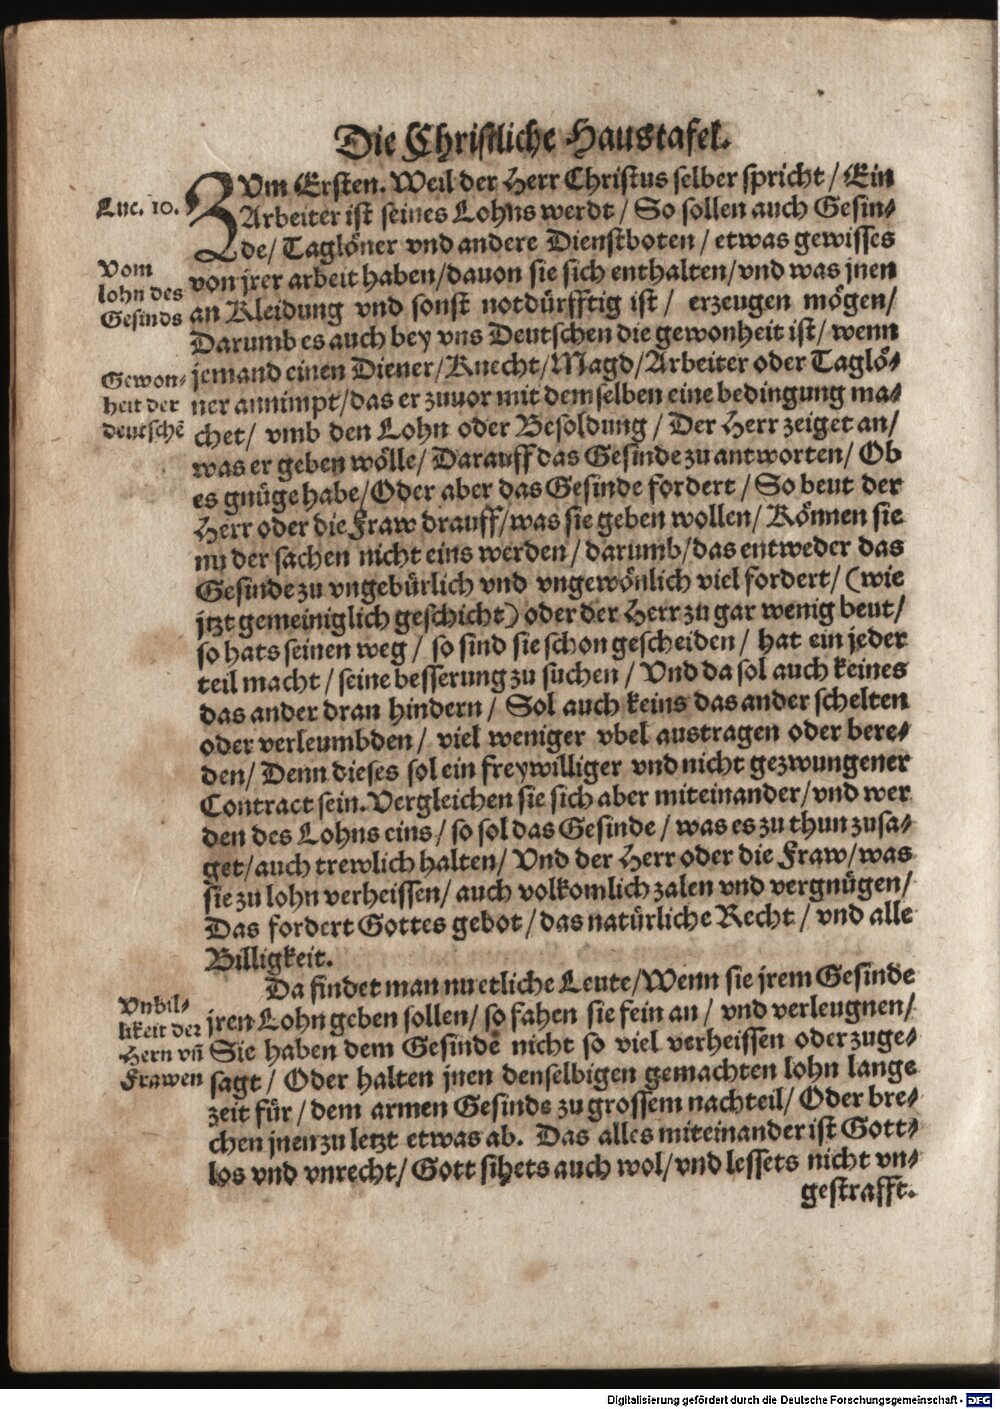 Die Christliche Haustafel.
ZVm Ersten. Weil der Herr Christus selber spricht / Ein
Luc. 10.
Arbeiter ist seines Lohns werdt / So sollen auch Gesin-
de / Taglöner vnd andere Dienstboten / etwas gewisses
Vom
lohn des
Gesinds
von jrer arbeit haben / dauon sie sich enthalten / vnd was jnen
an Kleidung vnd sonst notdürfftig ist / erzeugen mögen /
Darumb es auch bey vns Deutschen die gewonheit ist / wenn
Gewon-
heit der
deutschē
jemand einen Diener / Knecht / Magd / Arbeiter oder Taglö-
ner annimpt / das er zuuor mit demselben eine bedingung ma-
chet / vmb den Lohn oder Besoldung / Der Herr zeiget an /
was er geben wölle / Darauff das Gesinde zu antworten / Ob
es gnüge habe / Oder aber das Gesinde fordert / So beut der
Herr oder die Fraw drauff / was sie geben wollen / Können sie
nu der sachen nicht eins werden / darumb / das entweder das
Gesinde zu vngebürlich vnd vngewönlich viel fordert / (wie
jtzt gemeiniglich geschicht) oder der Herr zu gar wenig beut /
so hats seinen weg / so sind sie schon gescheiden / hat ein jeder
teil macht / seine besserung zu suchen / Vnd da sol auch keines
das ander dran hindern / Sol auch keins das ander schelten
oder verleumbden / viel weniger vbel austragen oder bere-
den / Denn dieses sol ein freywilliger vnd nicht gezwungener
Contract sein. Vergleichen sie sich aber miteinander / vnd wer
den des Lohns eins / so sol das Gesinde / was es zu thun zusa-
get / auch trewlich halten / Vnd der Herr oder die Fraw / was
sie zu lohn verheissen / auch volkomlich zalen vnd vergnügen /
Das fordert Gottes gebot / das natürliche Recht / vnd alle
Billigkeit.
Da findet man nu etliche Leute / Wenn sie jrem Gesinde
Vnbil-
likeit der
Hern vn̄
Frawen
jren Lohn geben sollen / so fahen sie fein an / vnd verleugnen /
Sie haben dem Gesinde nicht so viel verheissen oder zuge-
sagt / Oder halten jnen denselbigen gemachten lohn lange
zeit für / dem armen Gesinde zu grossem nachteil / Oder bre-
chen jnen zu letzt etwas ab. Das alles miteinander ist Gott-
los vnd vnrecht / Gott sihets auch wol / vnd lessets nicht vn-
gestrafft.
Digitalisierung gefördert durch die Deutsche Forschungsgemeinschaft - DFG